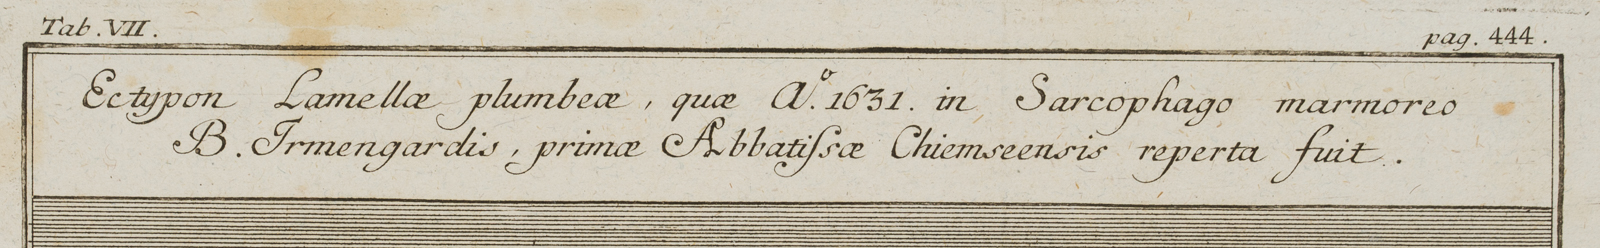 Tab. VII.
pag. 444.
Ectypon Lamellæ plumbeæ, quæ Aº. 1631. in Sarcophago marmoreo
B. Irmengardis, primæ Abbatiſsæ Chiemseensis reperta fuit.